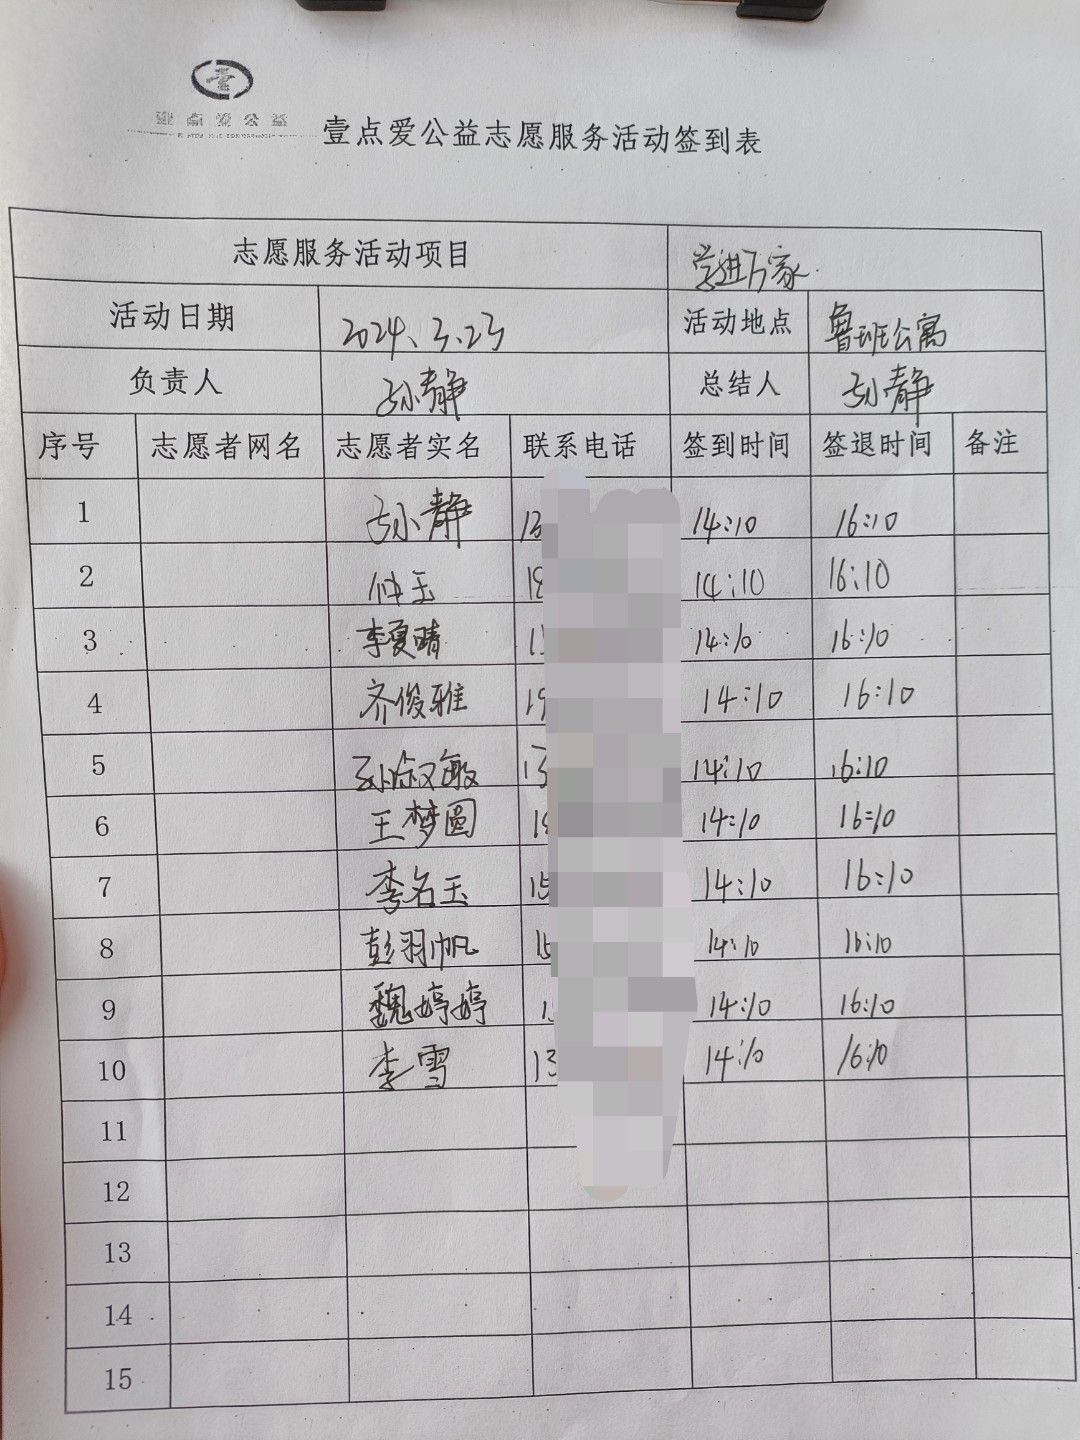 壹点爱公益
壹点爱公益志愿服务活动签到表
志愿服务活动项目 学进万家
活动日期 2024.3.23 活动地点 鲁班公寓
负责人 孙静 总结人 孙静
序号 志愿者网名 志愿者实名 联系电话 签到时间 签退时间 备注
1 孙静 13 14:10 16:10
2 仲玉 18 14:10 16:10
3 李夏晴 14:10 16:10
4 齐俊雅 19 14:10 16:10
5 孙淑敏 13 14:10 16:10
6 王梦圆 14:10 16:10
7 李名玉 15 14:10 16:10
8 彭羽帆 15 14:10 16:10
9 魏婷婷 14:10 16:10
10 李雪 13 14:10 16:10
11
12
13
14
15